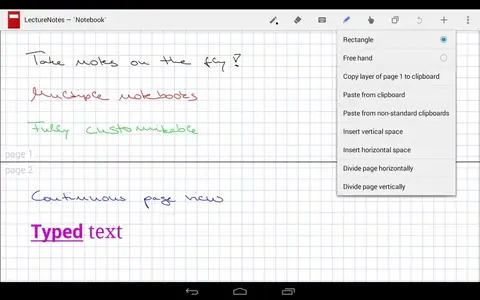 LectureNotes — `Notebook´
Take notes on the fly!
Multiple notebooks
Fully customizable
page 1
page 2
Continuous page view
Typed text
Rectangle
Free hand
Copy layer of page 1 to clipboard
Paste from clipboard
Paste from non-standard clipboards
Insert vertical space
Insert horizontal space
Divide page horizontally
Divide page vertically